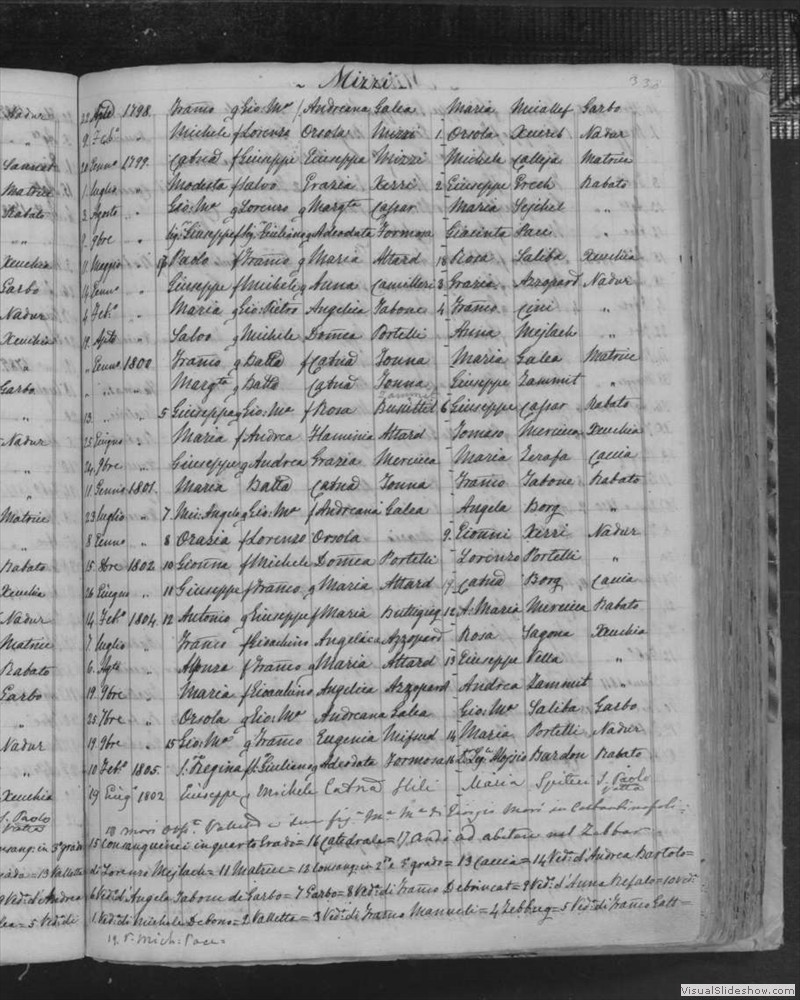 Mizzi
338
Nadur 22 Aple 1798. Franco g Gio: Ma f Andreana Galea Maria Micallef Garbo
" 9 Feb.o " Michele f Lorenzo Orsola Mizzi 1 Orsola Xuereb Nadur
20 Genno 1799. Catnd f Giuseppe Giuseppa Mizzi Michele Calleja Matrice
Matrice 1 luglio " Modesta f Salvo Grazia Xerri 2 Giuseppe Grech Rabato
Rabato 3 Agosto " Gio: Ma g Lorenzo g Margta Caspar Maria Sejchel "
" 9bre " Sigr Giuseppe f Sigr Giuliano g Adeodata Formosa Giacinta Pace "
Xeuchia 11 Maggio " Paolo f Franco g Maria Attard 18 Rosa Saliba Xeuchia
Garbo 14 Genno " Giuseppe f Michele g Anna Camilleri 3 Grazia Azzopard Nadur
Nadur 4 Feb.o " Maria g Gio: Pietro Angelica Tabone 4 Franco Cini "
Xeuchia 19 Aple " Salvo g Michele Domca Portelli Anna Mejlach "
" Genno 1800 Franco g Batta f Catnd Tonna Maria Galea Matrice
Garbo " " " Margta g Batta Catnd Tonna Giuseppe Zammit "
" 13 " " 5 Giuseppa g Gio: Ma f Rosa Busuttil 6 Giuseppe Caspar Rabato
Nadur 25 Giugno " Maria f Andrea Flaminia Attard Tomaso Mercieca Xeuchia
" 24 9bre " Giuseppe g Andrea Grazia Mercieca Maria Zerafa Caccia
" 11 Genno 1801. Maria Batta Catnd Tonna Franco Tabone Rabato
Matrice 23 luglio " 7 Mic: Angelo g Gio: Ma f Andreana Galea Angela Borg "
" 8 Genno " 8 Grazia f Lorenzo Orsola 9 Gionni Xerri Nadur
Rabato 15 1802 10 Gionna f Michele Domca Portelli Lorenzo Portelli "
Xeuchia 26 Giugno " 11 Giuseppe f Franco g Maria Attard 17 Catnd Borg Caccia
Nadur 14 Feb.o 1804. 12 Antonio g Giuseppe f Maria Buttigieg 12 A: Maria Mercieca Rabato
Matrice 7 luglio " Franco f Gioachino Angelica Azzopard Rosa Sagona Xeuchia
Rabato 6 " Alfonza f Franco g Maria Attard 13 Giuseppe Vella "
Garbo 19 9bre " Maria f Gioachino Angelica Azzopard Andrea Zammit "
" 25 7bre " Orsola g Gio: Ma Andreana Galea Gio: Ma Saliba Garbo
Nadur 19 9bre " 15 Gio: Ma g Franco Eugenia Mifsud 14 Maria Portelli Nadur
" 10 Feb.o 1805. Sa Regina f Sr Giuliano g Adeodata Formosa 16 Aloysio Burdon Rabato
Xeuchia 19 Giugo 1802 Giuseppe g Michele Catnd Hili Maria Spiteri S. Paolo
S. Paolo Valletta e due figi Ma Ma di Giorgio morì in Costantinopoli
Consang: in 3° grado 15 Consanguinei in quarto Grado = 16 Catedrale = 17 Andò ad abitare nel Zebbar
= 13 Valletta di Lorenzo Mejlach = 11 Matrice = 12 Consang: in 2° e 3° grado = 13 Caccia = 14 Ved: d'Andrea Bartolo =
Ved: d'Andrea 6 Ved: d'Angela Tabone di Garbo = 7 Garbo = 8 Ved: di Franco Debrincat = 9 Ved: d'Anna Refalo = 10 Ved:
= 5 Ved: di 1. Ved: di Michele Debono = 2 Valletta = 3 Ved: di Franco = 4 Zebbug = 5 Ved: di Franco Gatt =
19. Mich: Pace
VisualSlideshow.com